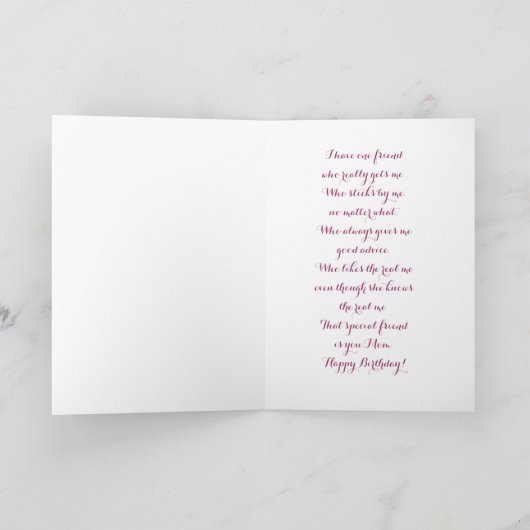 I have one friend
who really gets me
Who sticks by me,
no matter what
Who always gives me
good advice
Who likes the real me
even though she knows
the real me
That special friend
is you Mom
Happy Birthday!